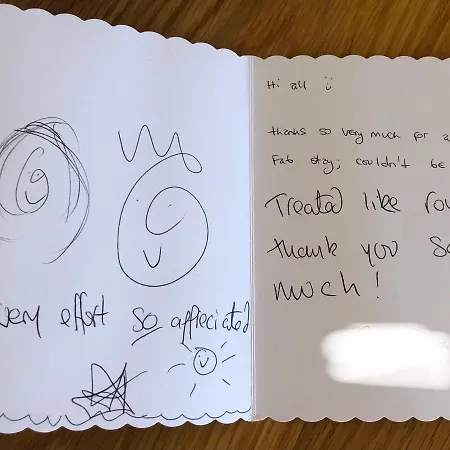 very effort so appreciated
Hi all
thanks so very much for a
Fab stay; couldn't be
Treated like
thank you so
much!